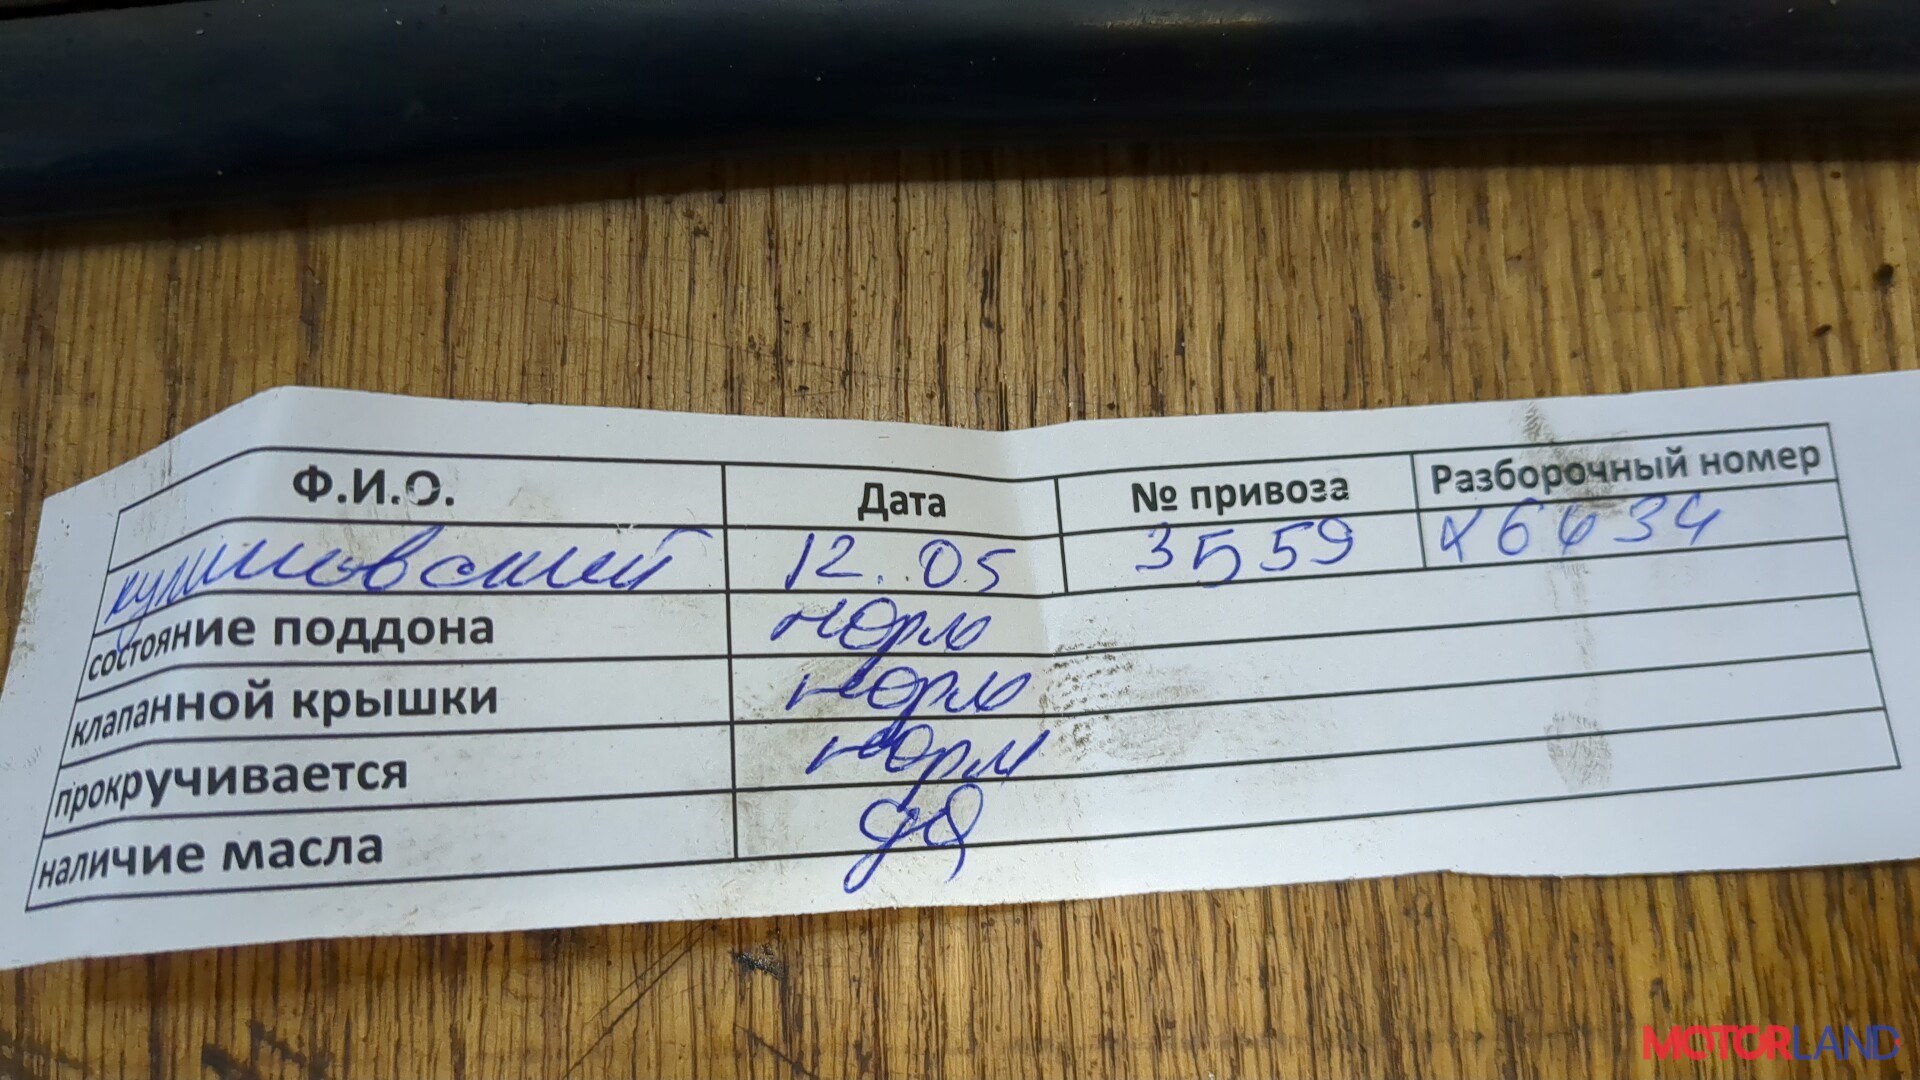 Ф.И.О. Дата № привоза Разборочный номер
12.05 3559
состояние поддона норм
клапанной крышки норм
прокручивается норм
наличие масла да
MOTORLAND